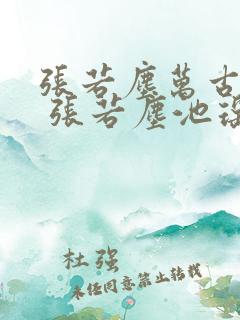 張若塵萬古
張若塵池
杜强
未經同意禁止轉載